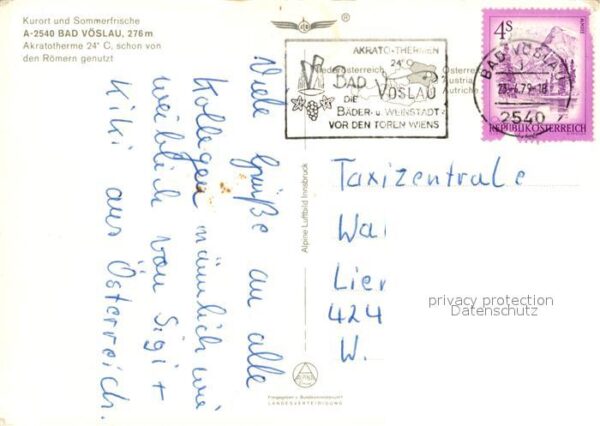 Kurort und Sommerfrische
A-2540 BAD VÖSLAU, 276 m
Akratotherme 24° C, schon von
den Römern genutzt
®
AKRATO-THERMEN
24°C
Niederösterreich
Österreich
Austria
Autriche
BAD VÖSLAU
DIE
BÄDER- u. WEINSTADT
VOR DEN TOREN WIENS
4S
REPUBLIK ÖSTERREICH
BAD VÖSLAU
2540
Viele Grüße an alle
Kollegen männlich wie
weiblich von Sigi +
Kiki aus Österreich.
Alpine Luftbild Innsbruck
Taxizentrale
Wal
Lier
424
W.
privacy protection
Datenschutz
LANDESVERTEIDIGUNG